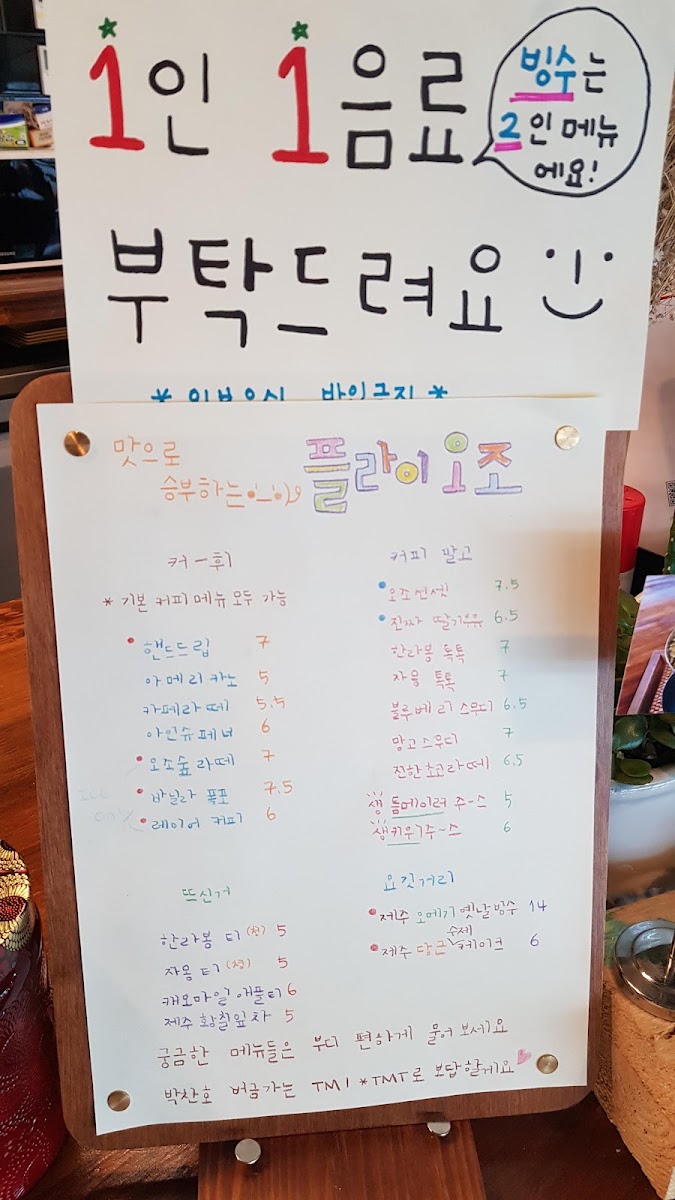 1인 1음료
빙수는
2인 메뉴
에요!
부탁드려요
맛으로
승부하는
플라이 오조
커-휘
* 기본 커피 메뉴 모두 가능
핸드드립 7
아메리카노 5
카페라떼 5.5
아인슈페너 6
오소숲 라떼 7
바닐라 폭포 7.5
레이어 커피 6
ICE
only
커피 말고
오조 선셋 7.5
진짜 딸기우유 6.5
한라봉 톡톡 7
자몽 톡톡 7
블루베리 스무디 6.5
망고 스무디 7
진한 초코라떼 6.5
생 톰메이러 주-스 5
생키위 주-스 6
뜨신거
한라봉 티 (청) 5
자몽 티 (청) 5
캐모마일 애플티 6
제주 황칠잎차 5
요깃거리
제주 오메기 옛날빙수 14
수제
제주 당근 케이크 6
궁금한 메뉴들은 부디 편하게 물어 보세요
박찬호 버금가는 TMI *TMT로 보답할게요